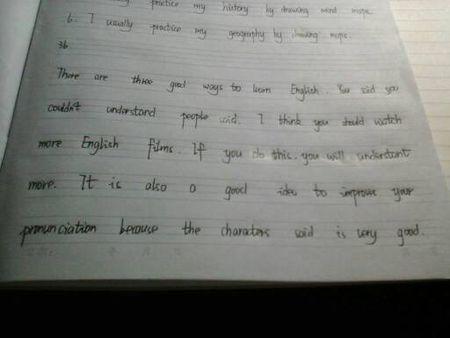 practice my history by drawing mind maps.
6. I usually practice my geography by drawing maps.
3b
There are three good ways to learn English. You said you
couldn't understand people said. I think you should watch
more English films. If you do this, you will understant
more. It is also a good idea to improve your
pronunciation because the charactors said is very good.